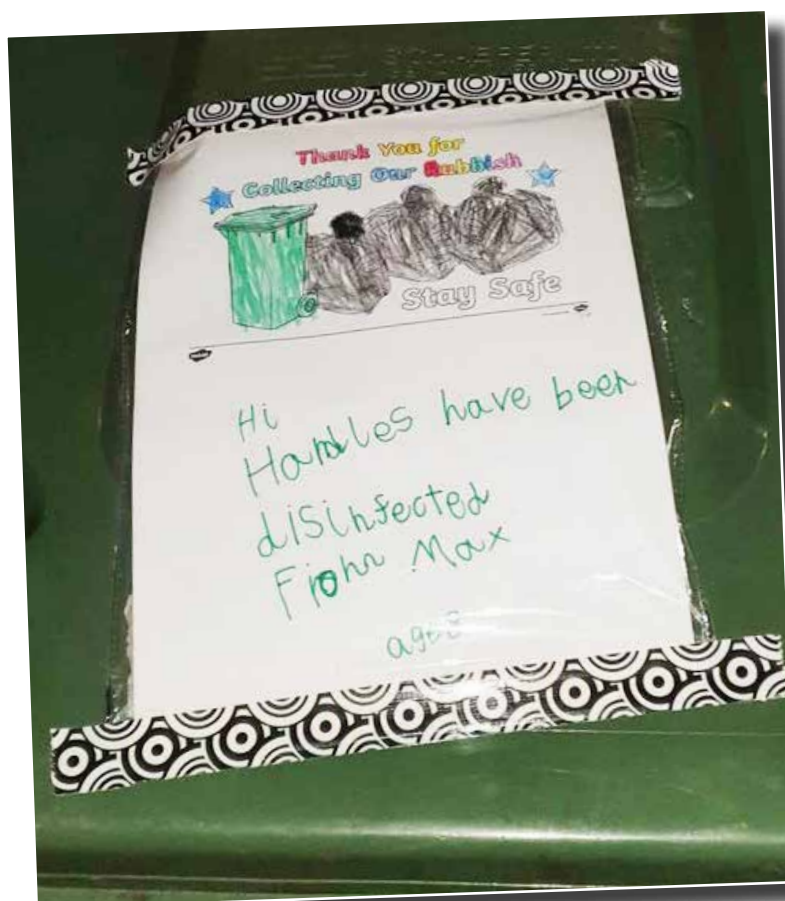 Thank You for
Collecting Our Rubbish
Stay Safe
Hi
Handles have been
disinfected
From Max
age 8